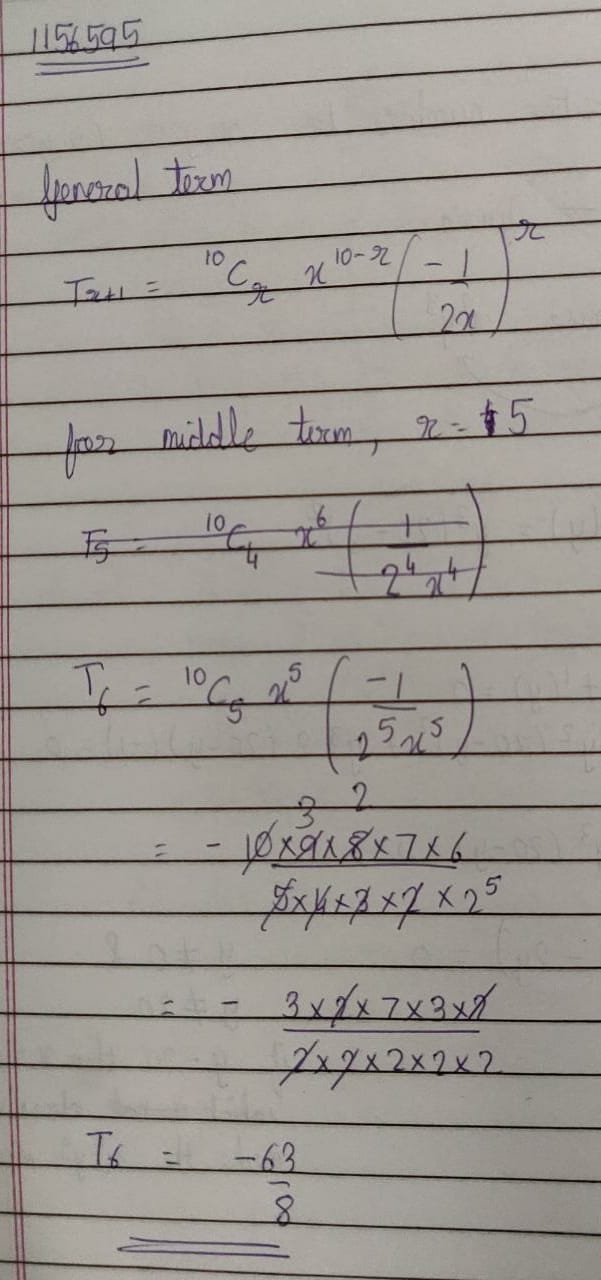 1156595
General term
Tr+1 = ¹⁰Cr x^(10-r) (-1/2x)^r
for middle term, r = 5
T5 = ¹⁰C4 x⁶ (1/2⁴x⁴)
T6 = ¹⁰C5 x⁵ (-1/2⁵x⁵)
3 2
= - 10×9×8×7×6 / 5×4×3×2×2⁵
= - 3×2×7×3×2 / 2×2×2×2×2
T6 = -63/8